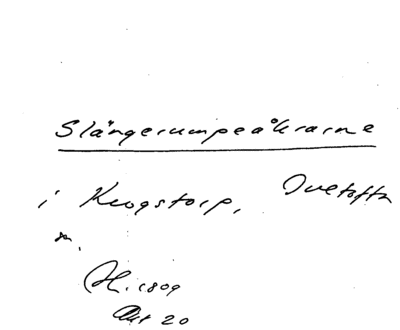 Slängerumpeåkrarne
i Krogstorp, Ovetofta
sn.
LH. 1809
Akt 20